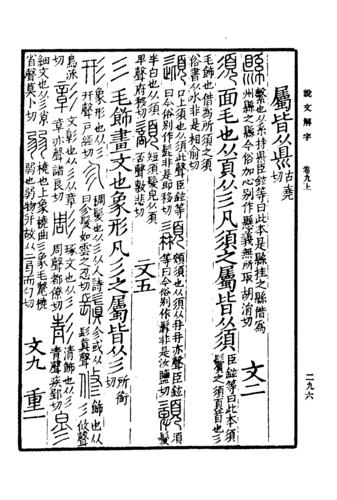 說文解字 卷九上
二九六
屬皆从県 古堯切
縣 繫也从系持県臣鉉等曰此本是縣挂之縣借爲州縣之縣今俗加心別作懸義無所取胡涓切 文二
須 面毛也从頁从彡凡須之屬皆从須 臣鉉等曰此本須鬢之須頁首也彡
毛飾也借爲所須之須俗書从水非是相俞切
頾 口上須也从須此聲臣鉉等曰今俗別作髭非是即移切 䫇 頰須也从須从冄冄亦聲臣鉉等曰今俗別作髥非是汝鹽切 須
半白也从須卑聲府移切 短須髮皃从須否聲敷悲切 文五
彡 毛飾畫文也象形凡彡之屬皆从彡 所銜切
形 象形也从彡幵聲戶經切 㐱 稠髮也从彡从人詩曰㐱髮如雲之忍切 鬒 㐱或从髟眞聲 修 飾也从彡攸聲
息流切 彰 文彰也从彡从章章亦聲諸良切 彫 琢文也从彡周聲都僚切 彭 清飾也从彡青聲疾郢切 㣎
細文也从彡省聲莫卜切 弱 橈也上象橈曲彡象毛氂橈弱也弱物并故从二弓而勺切 文九 重一